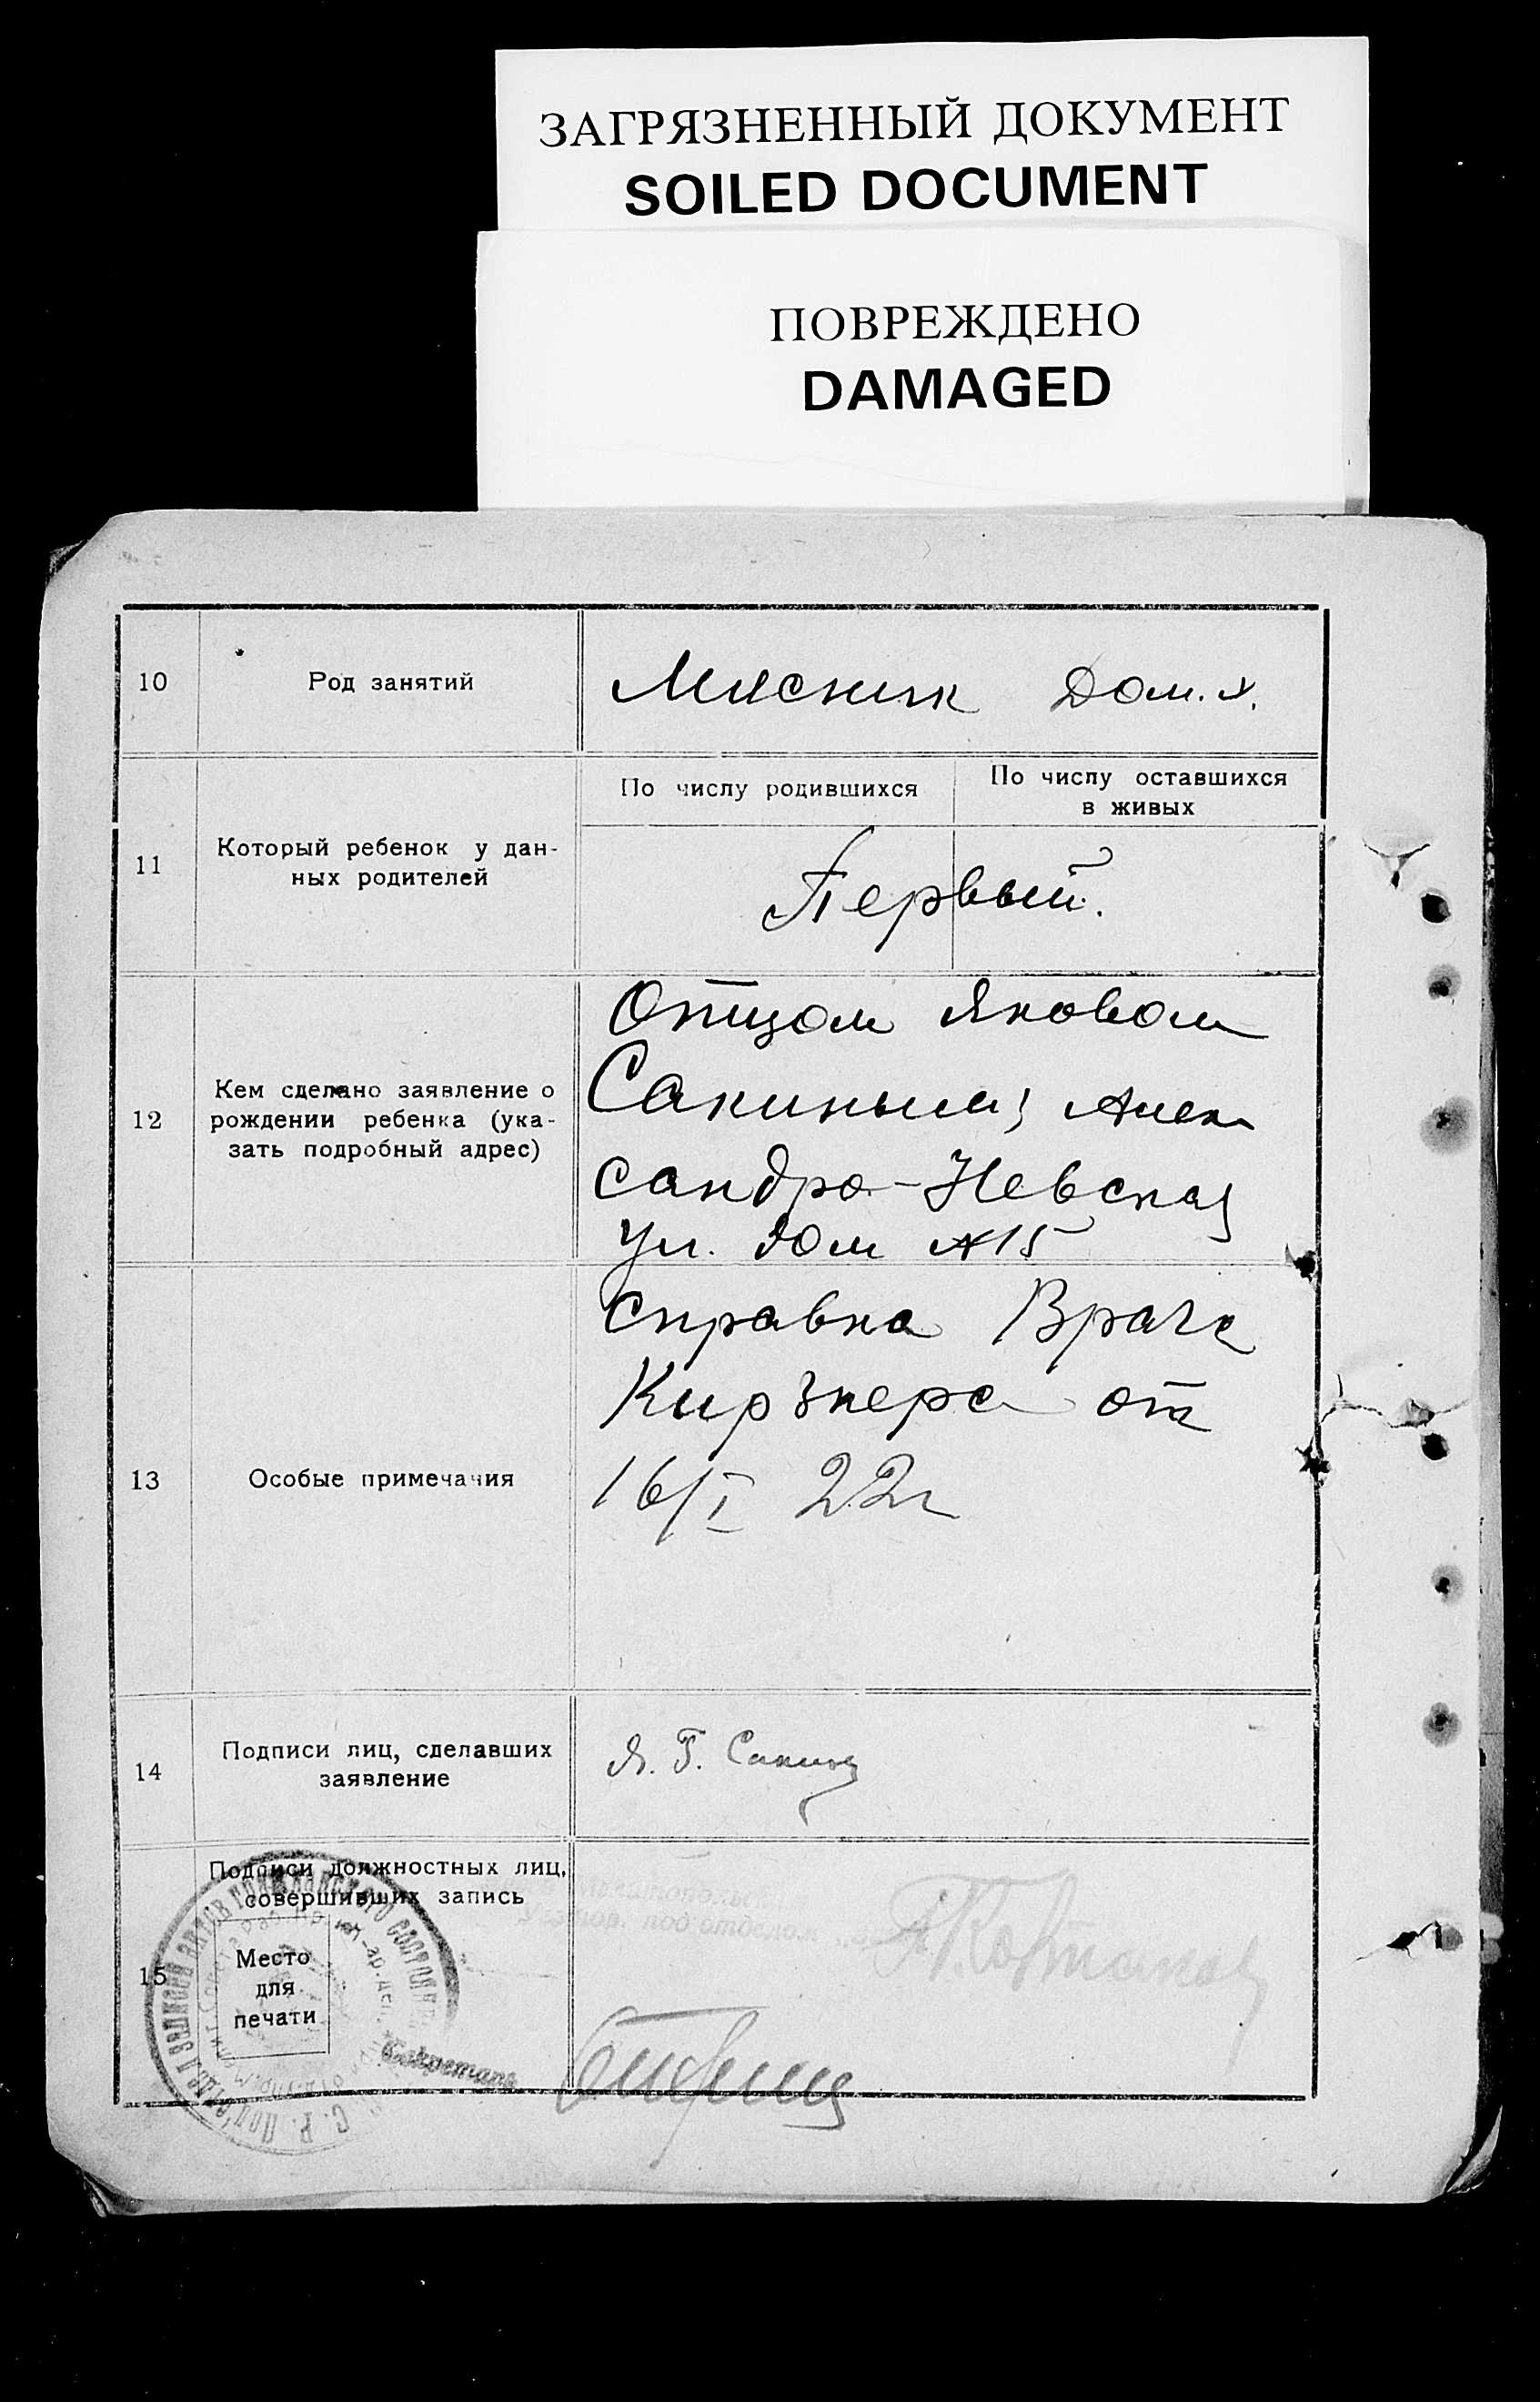 ЗАГРЯЗНЕННЫЙ ДОКУМЕНТ
SOILED DOCUMENT
ПОВРЕЖДЕНО
DAMAGED
10
Род занятий
Мясник Дом. х.
11
Который ребенок у дан-
ных родителей
По числу родившихся
По числу оставшихся
в живых
Первый.
12
Кем сделано заявление о
рождении ребенка (ука-
зать подробный адрес)
Отцом Яковом
Сакиным, Алек
сандро-Невская
ул. дом №15
13
Особые примечания
Справка Врача
Кирзнера от
16/I 22г
14
Подписи лиц, сделавших
заявление
Я. Г. Сакин
15
Подписи должностных лиц,
совершивших запись
Место
для
печати
Секретарь